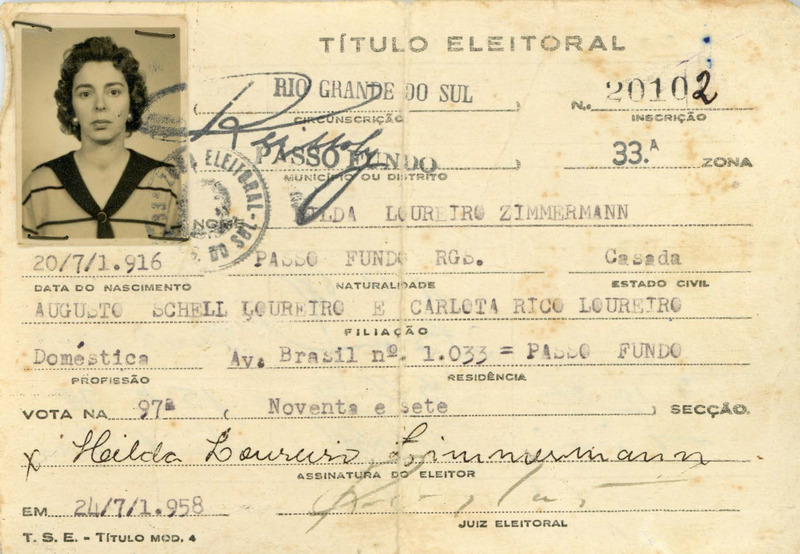 TÍTULO ELEITORAL
RIO GRANDE DO SUL
CIRCUNSCRIÇÃO
N. 20102
INSCRIÇÃO
PASSO FUNDO
MUNICÍPIO OU DISTRITO
33.A ZONA
ELEITORAL
NOME HILDA LOUREIRO ZIMMERMANN
20/7/1.916 PASSO FUNDO RGS. Casada
DATA DO NASCIMENTO NATURALIDADE ESTADO CIVIL
AUGUSTO SCHELL LOUREIRO E CARLOTA RICO LOUREIRO
FILIAÇÃO
Doméstica Av. Brasil nº. 1.033 = PASSO FUNDO
PROFISSÃO RESIDÊNCIA
VOTA NA 97ª ( Noventa e sete ) SECÇÃO.
x Hilda Loureiro Zimmermann
ASSINATURA DO ELEITOR
EM 24/7/1.958
JUIZ ELEITORAL
T. S. E. - TÍTULO MOD. 4